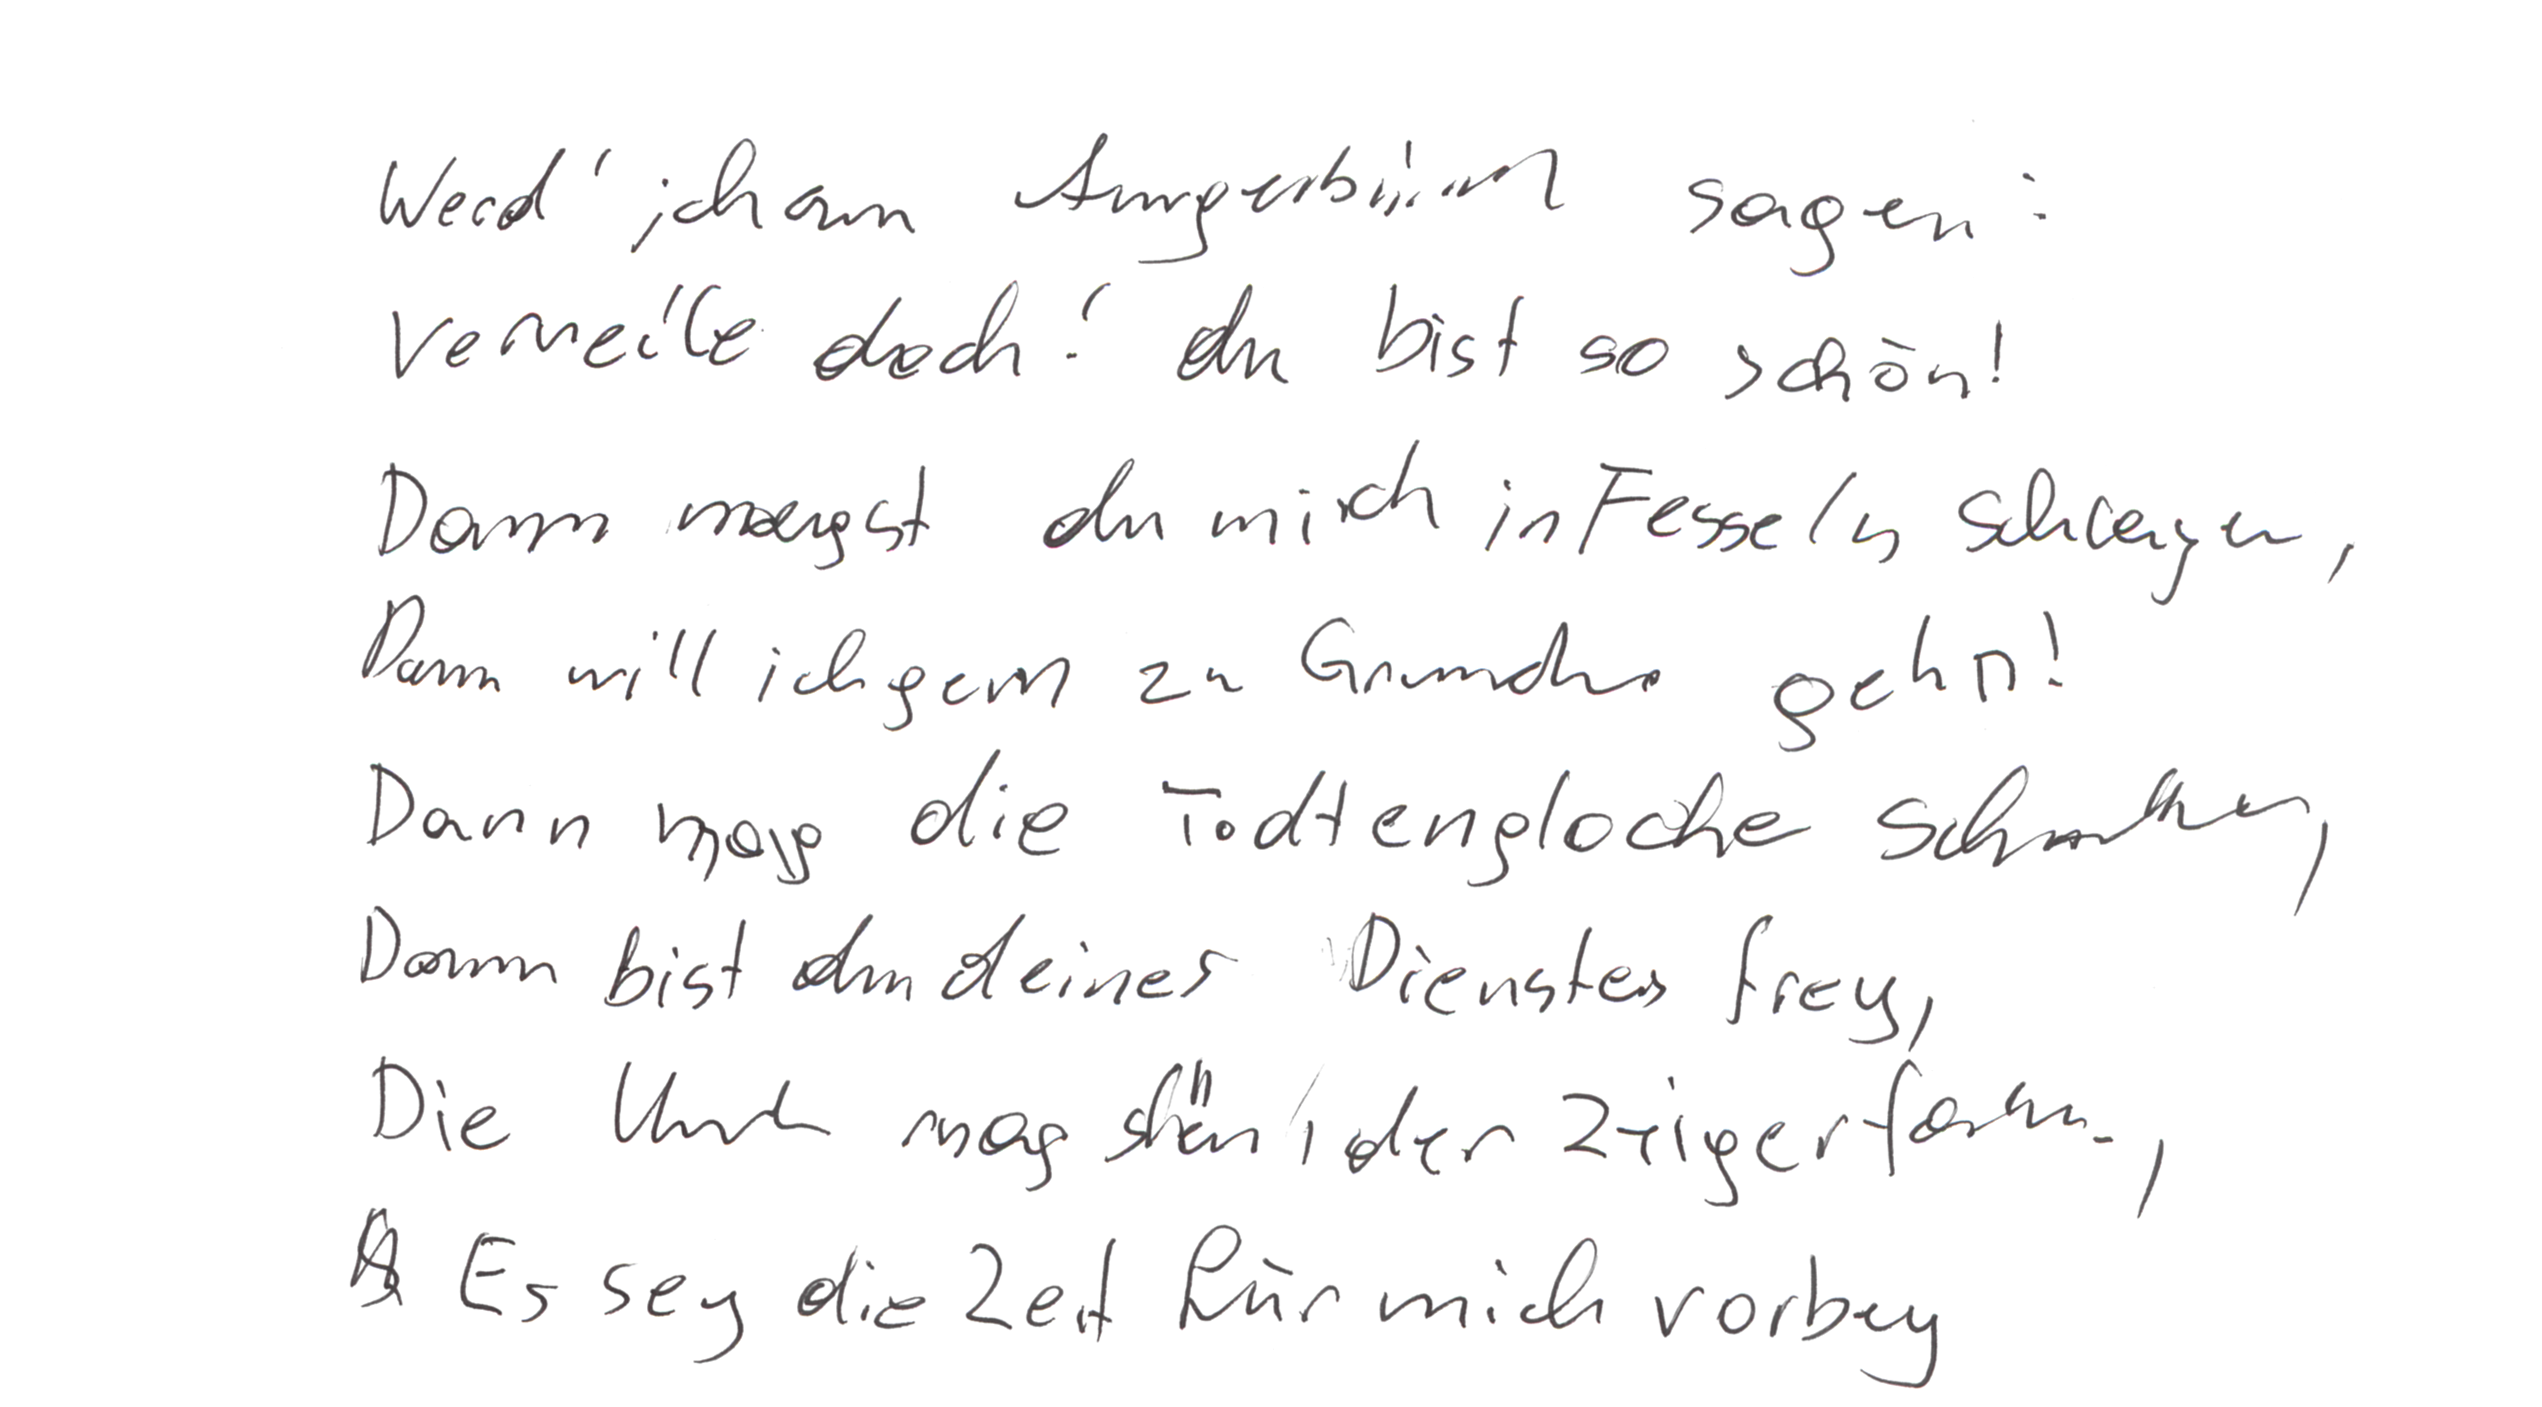 Werd' ich am Augenblick sagen:
Verweile doch! du bist so schön!
Dann magst du mich in Fesseln schlagen,
Dann will ich gern zu Grunde gehn!
Dann mag die Todtenglocke schallen,
Dann bist du deines Dienstes frey,
Die Uhr mag stehn, der Zeiger fallen,
Es sey die Zeit für mich vorbey